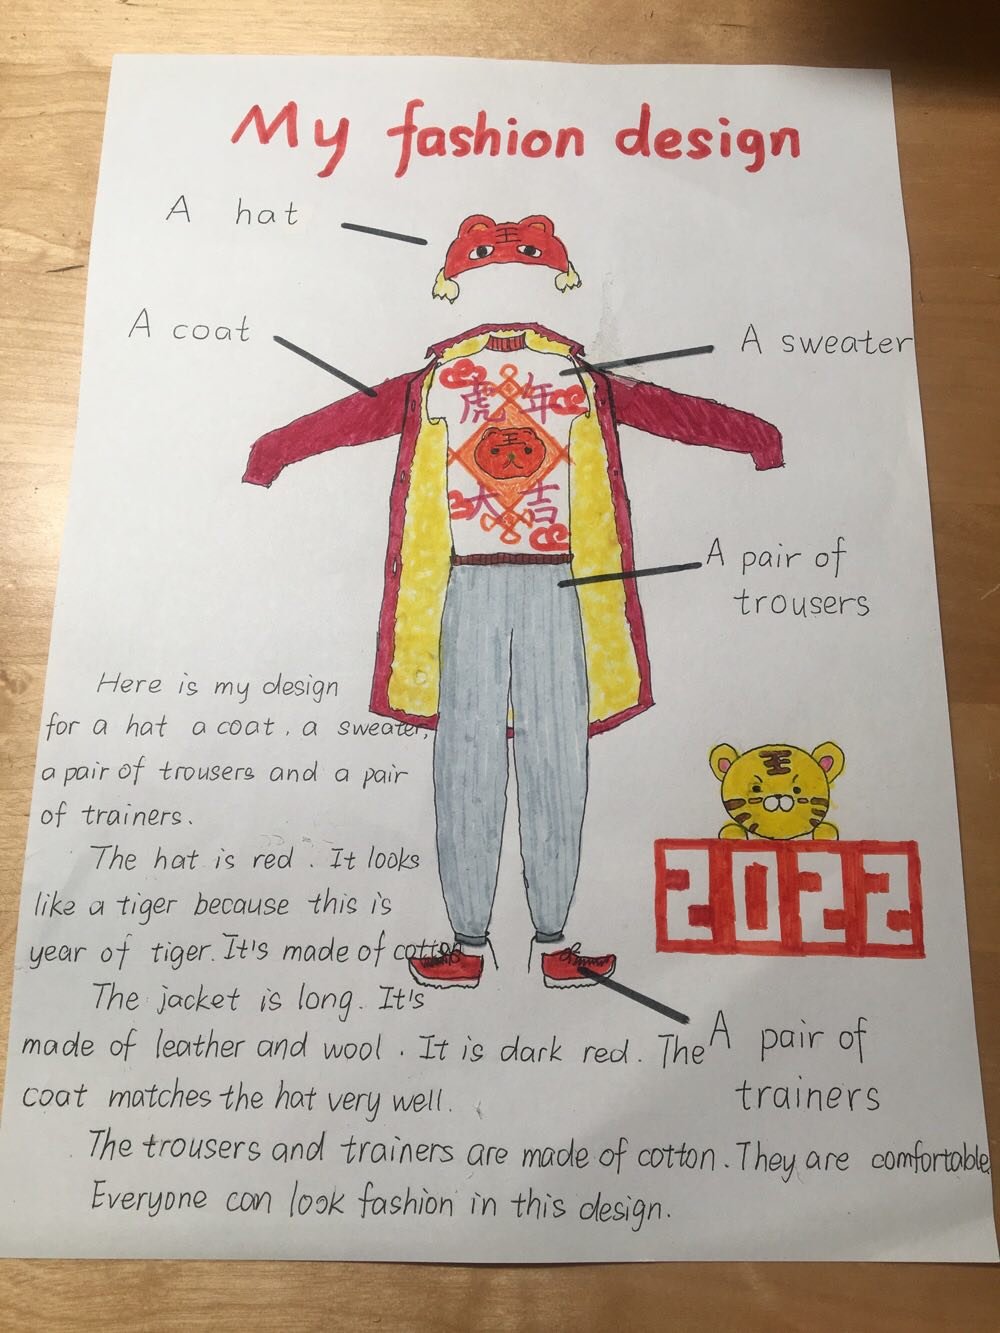 My fashion design
A hat
A coat
A sweater
王
虎年
王
大吉
A pair of
trousers
Here is my design
for a hat a coat, a sweater,
a pair of trousers and a pair
of trainers.
王
2022
The hat is red. It looks
like a tiger because this is
year of tiger. It's made of cotton
The jacket is long. It's
made of leather and wool. It is dark red. The
coat matches the hat very well.
A pair of
trainers
The trousers and trainers are made of cotton. They are comfortable
Everyone can look fashion in this design.